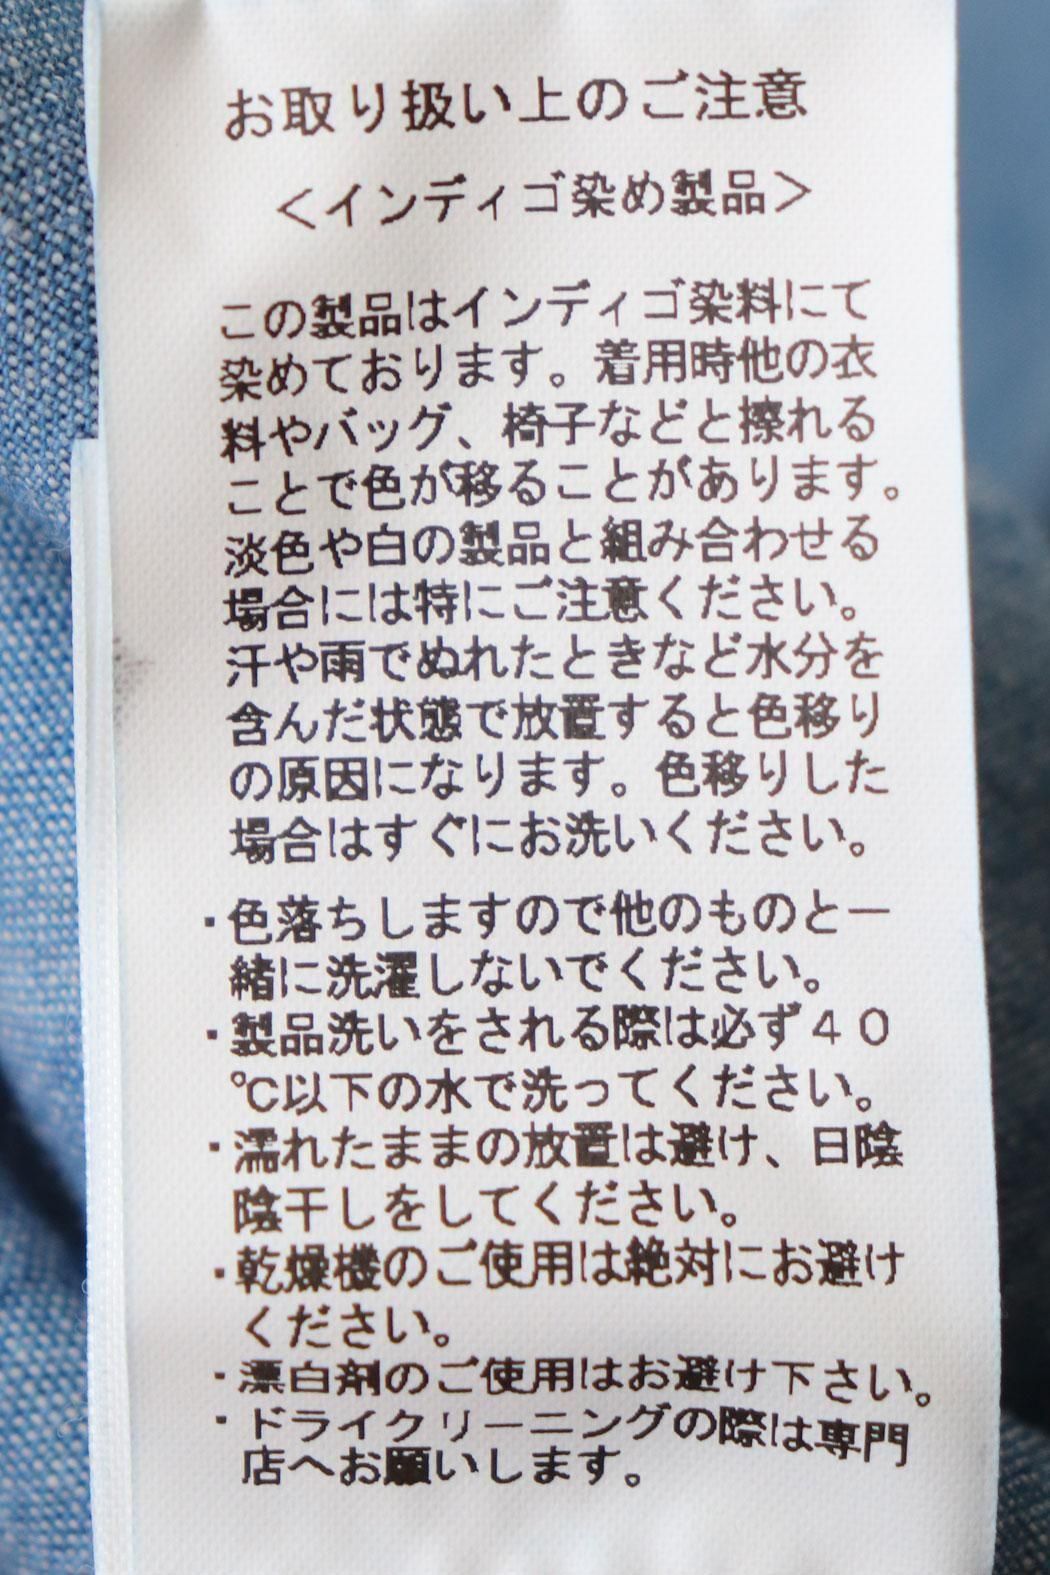 お取り扱い上のご注意
<インディゴ染め製品>
この製品はインディゴ染料にて
染めております。着用時他の衣
料やバッグ、椅子などと擦れる
ことで色が移ることがあります。
淡色や白の製品と組み合わせる
場合には特にご注意ください。
汗や雨でぬれたときなど水分を
含んだ状態で放置すると色移り
の原因になります。色移りした
場合はすぐにお洗いください。
・色落ちしますので他のものと一
緒に洗濯しないでください。
・製品洗いをされる際は必ず40
℃以下の水で洗ってください。
・濡れたままの放置は避け、日陰
陰干しをしてください。
・乾燥機のご使用は絶対にお避け
ください。
・漂白剤のご使用はお避け下さい。
・ドライクリーニングの際は専門
店へお願いします。